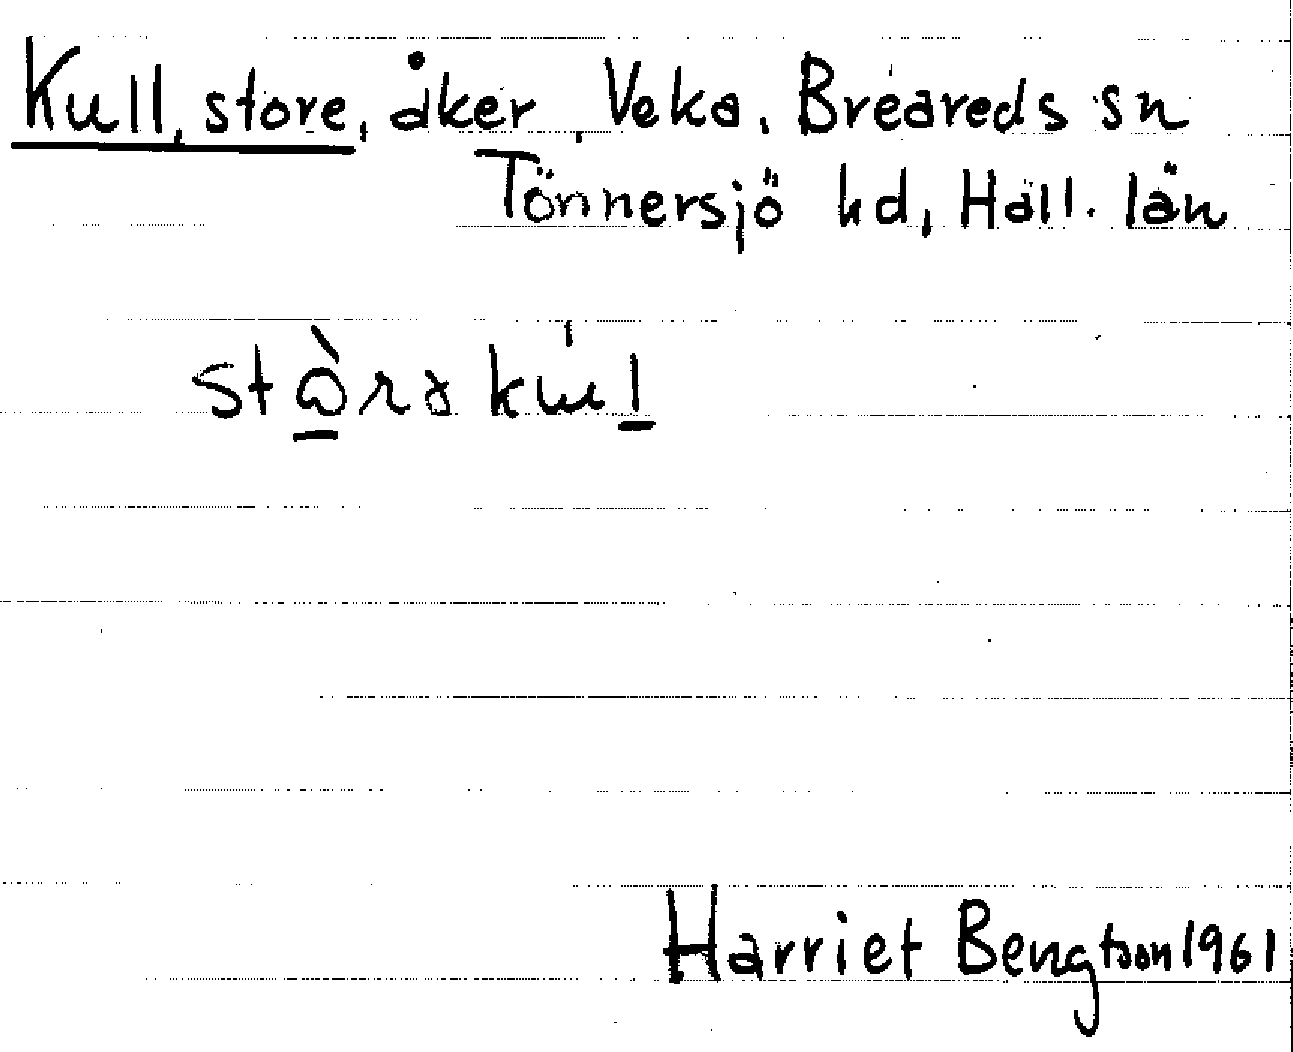 Kull, store, åker, Veka, Breareds sn
Tönnersjö hd, Hall. län
Harriet Bengtson 1961